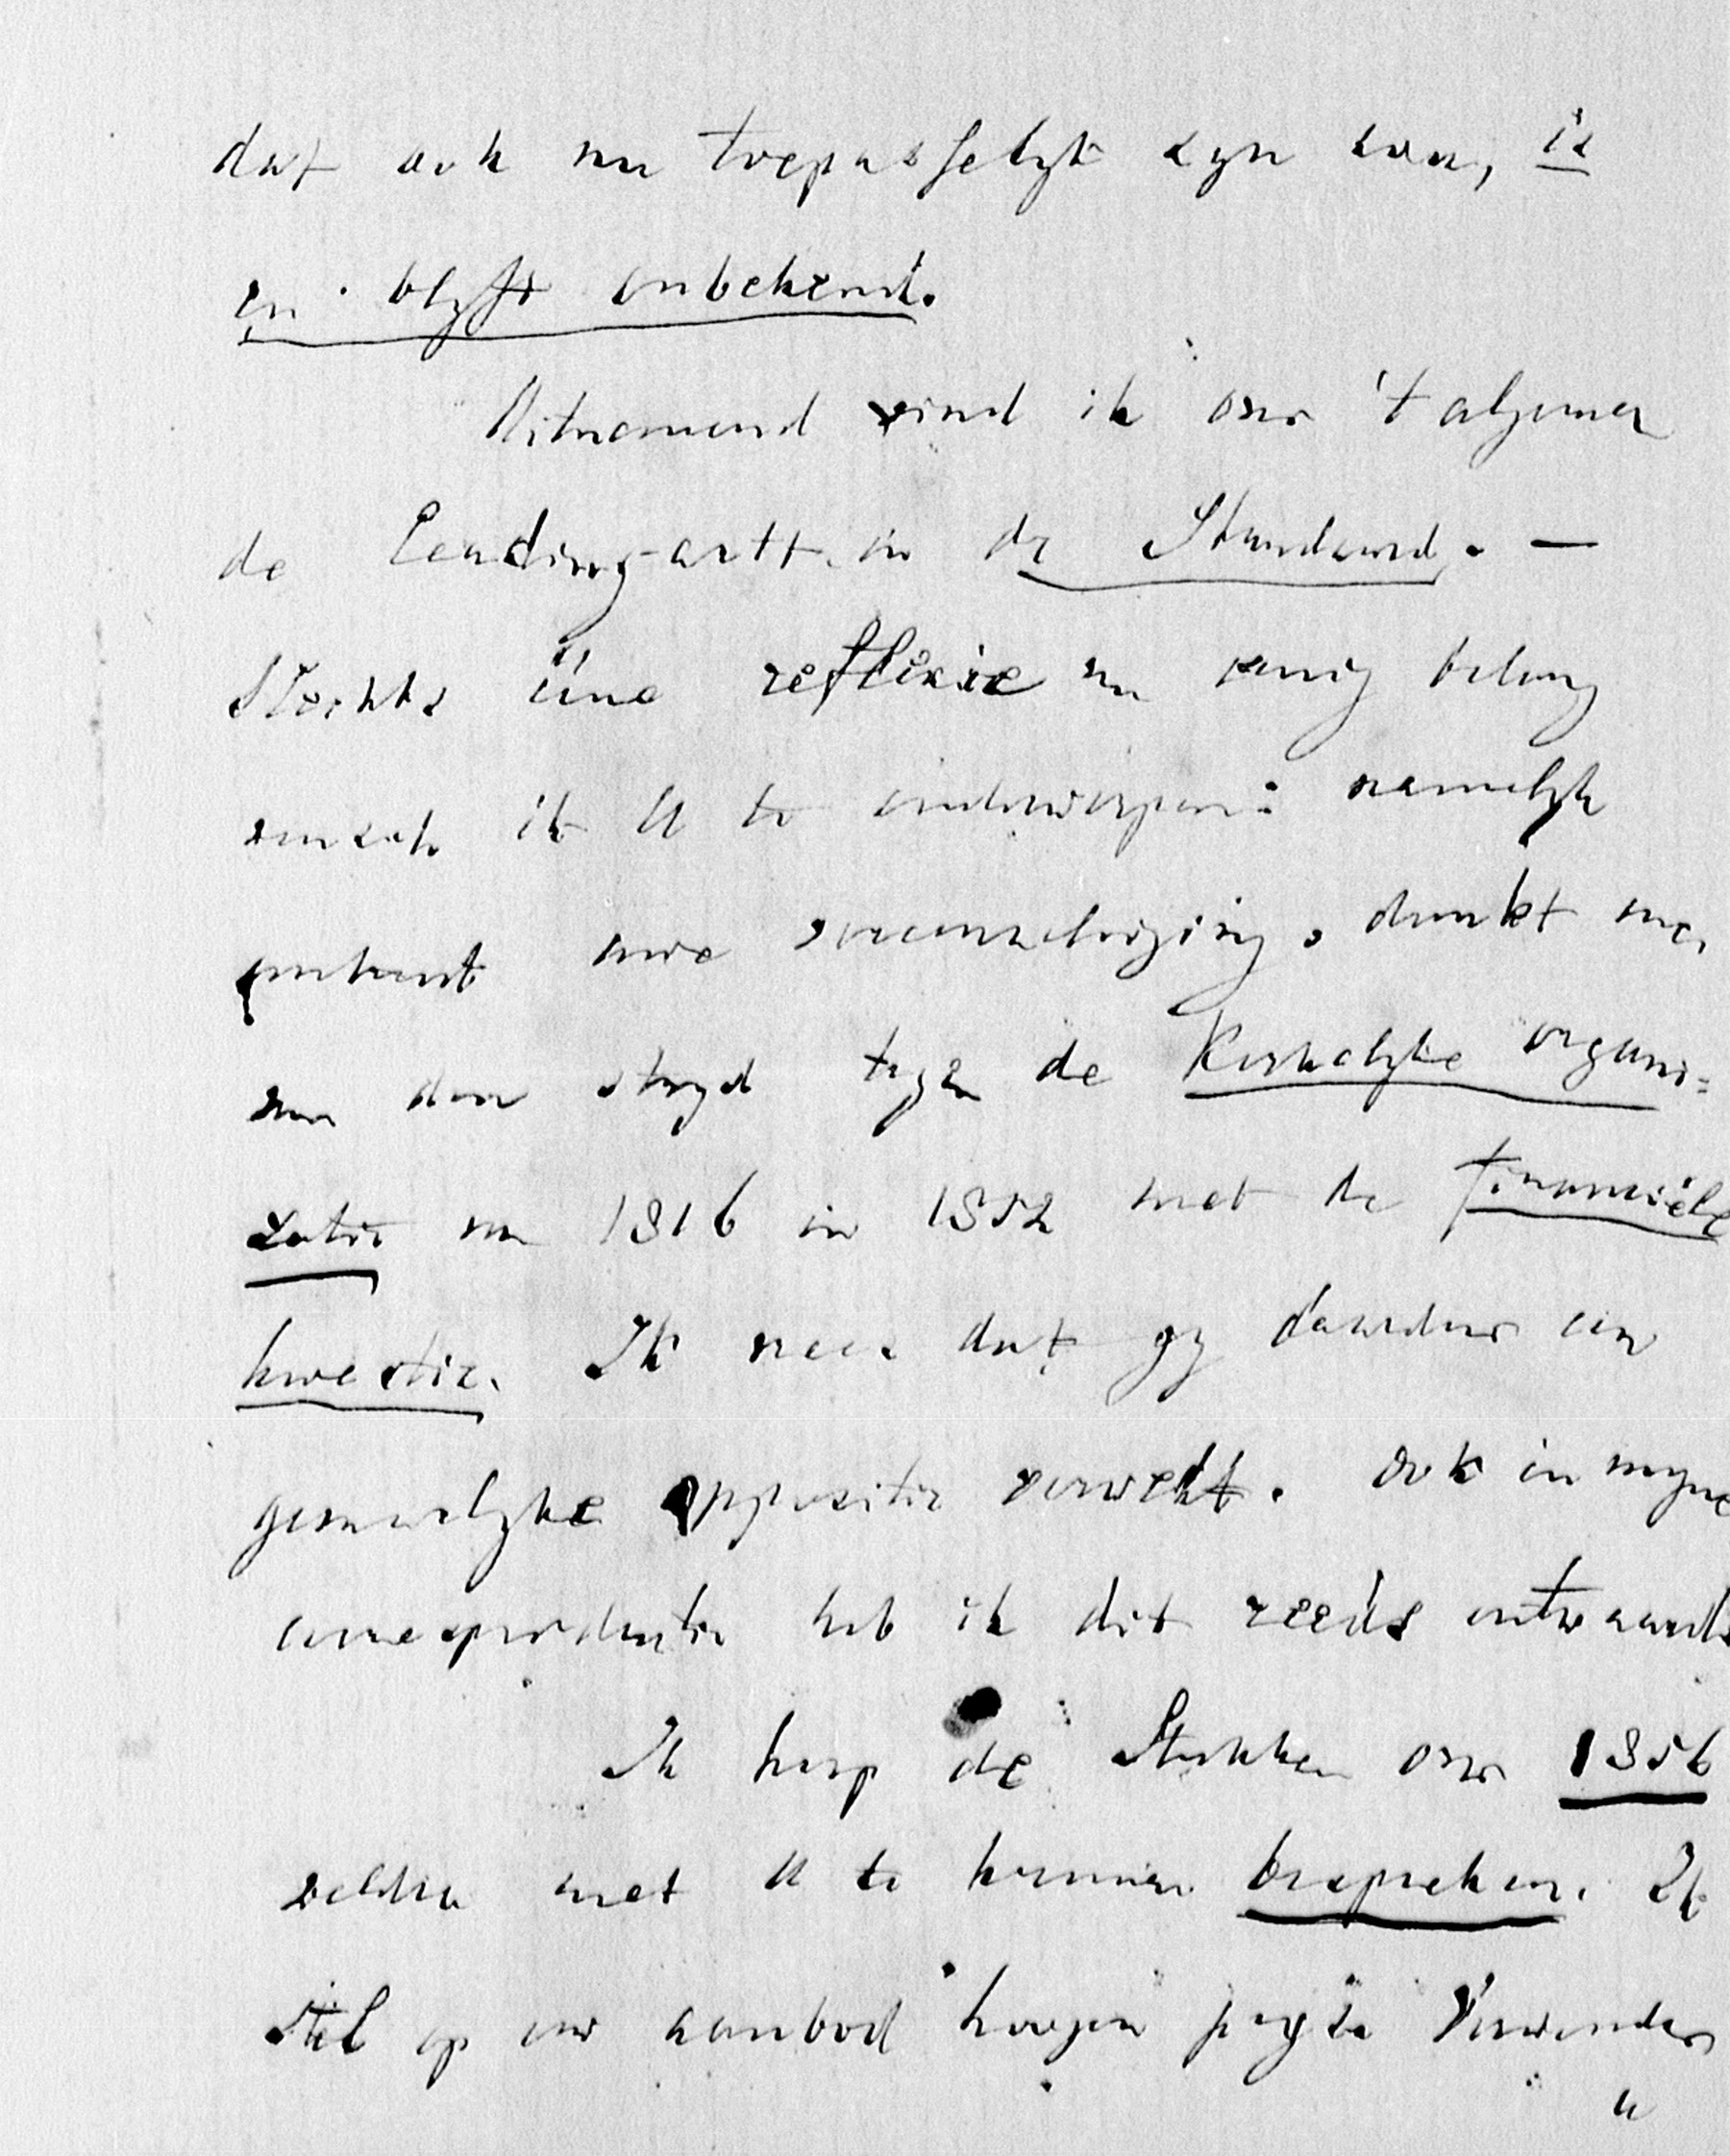 dat ook nu toepasselyk zyn zou, is
en blyft onbekend.
Uitnemend vind ik over 't algemeen
de Leading-artt. in de Standaard. —
Slechts ééne reflexie van eenig belang
wensch ik U te onderwerpen: namelyk
omtrent uwe vereenzelviging, dunkt me,
van den stryd tegen de Kerkelyke organi=
zatie van 1816 in 1852 met de financiële
kwestie. Ik vrees dat gy daardoor een
gevaarlyke oppositie verwekt. Ook in myne
correspondentie heb ik dit reeds ontwaard.
Ik hoop de Stukken over 1856
zelden met U te kunnen bespreken. Ik
stel op uw aanbod hoogen prys. Verwonder
u